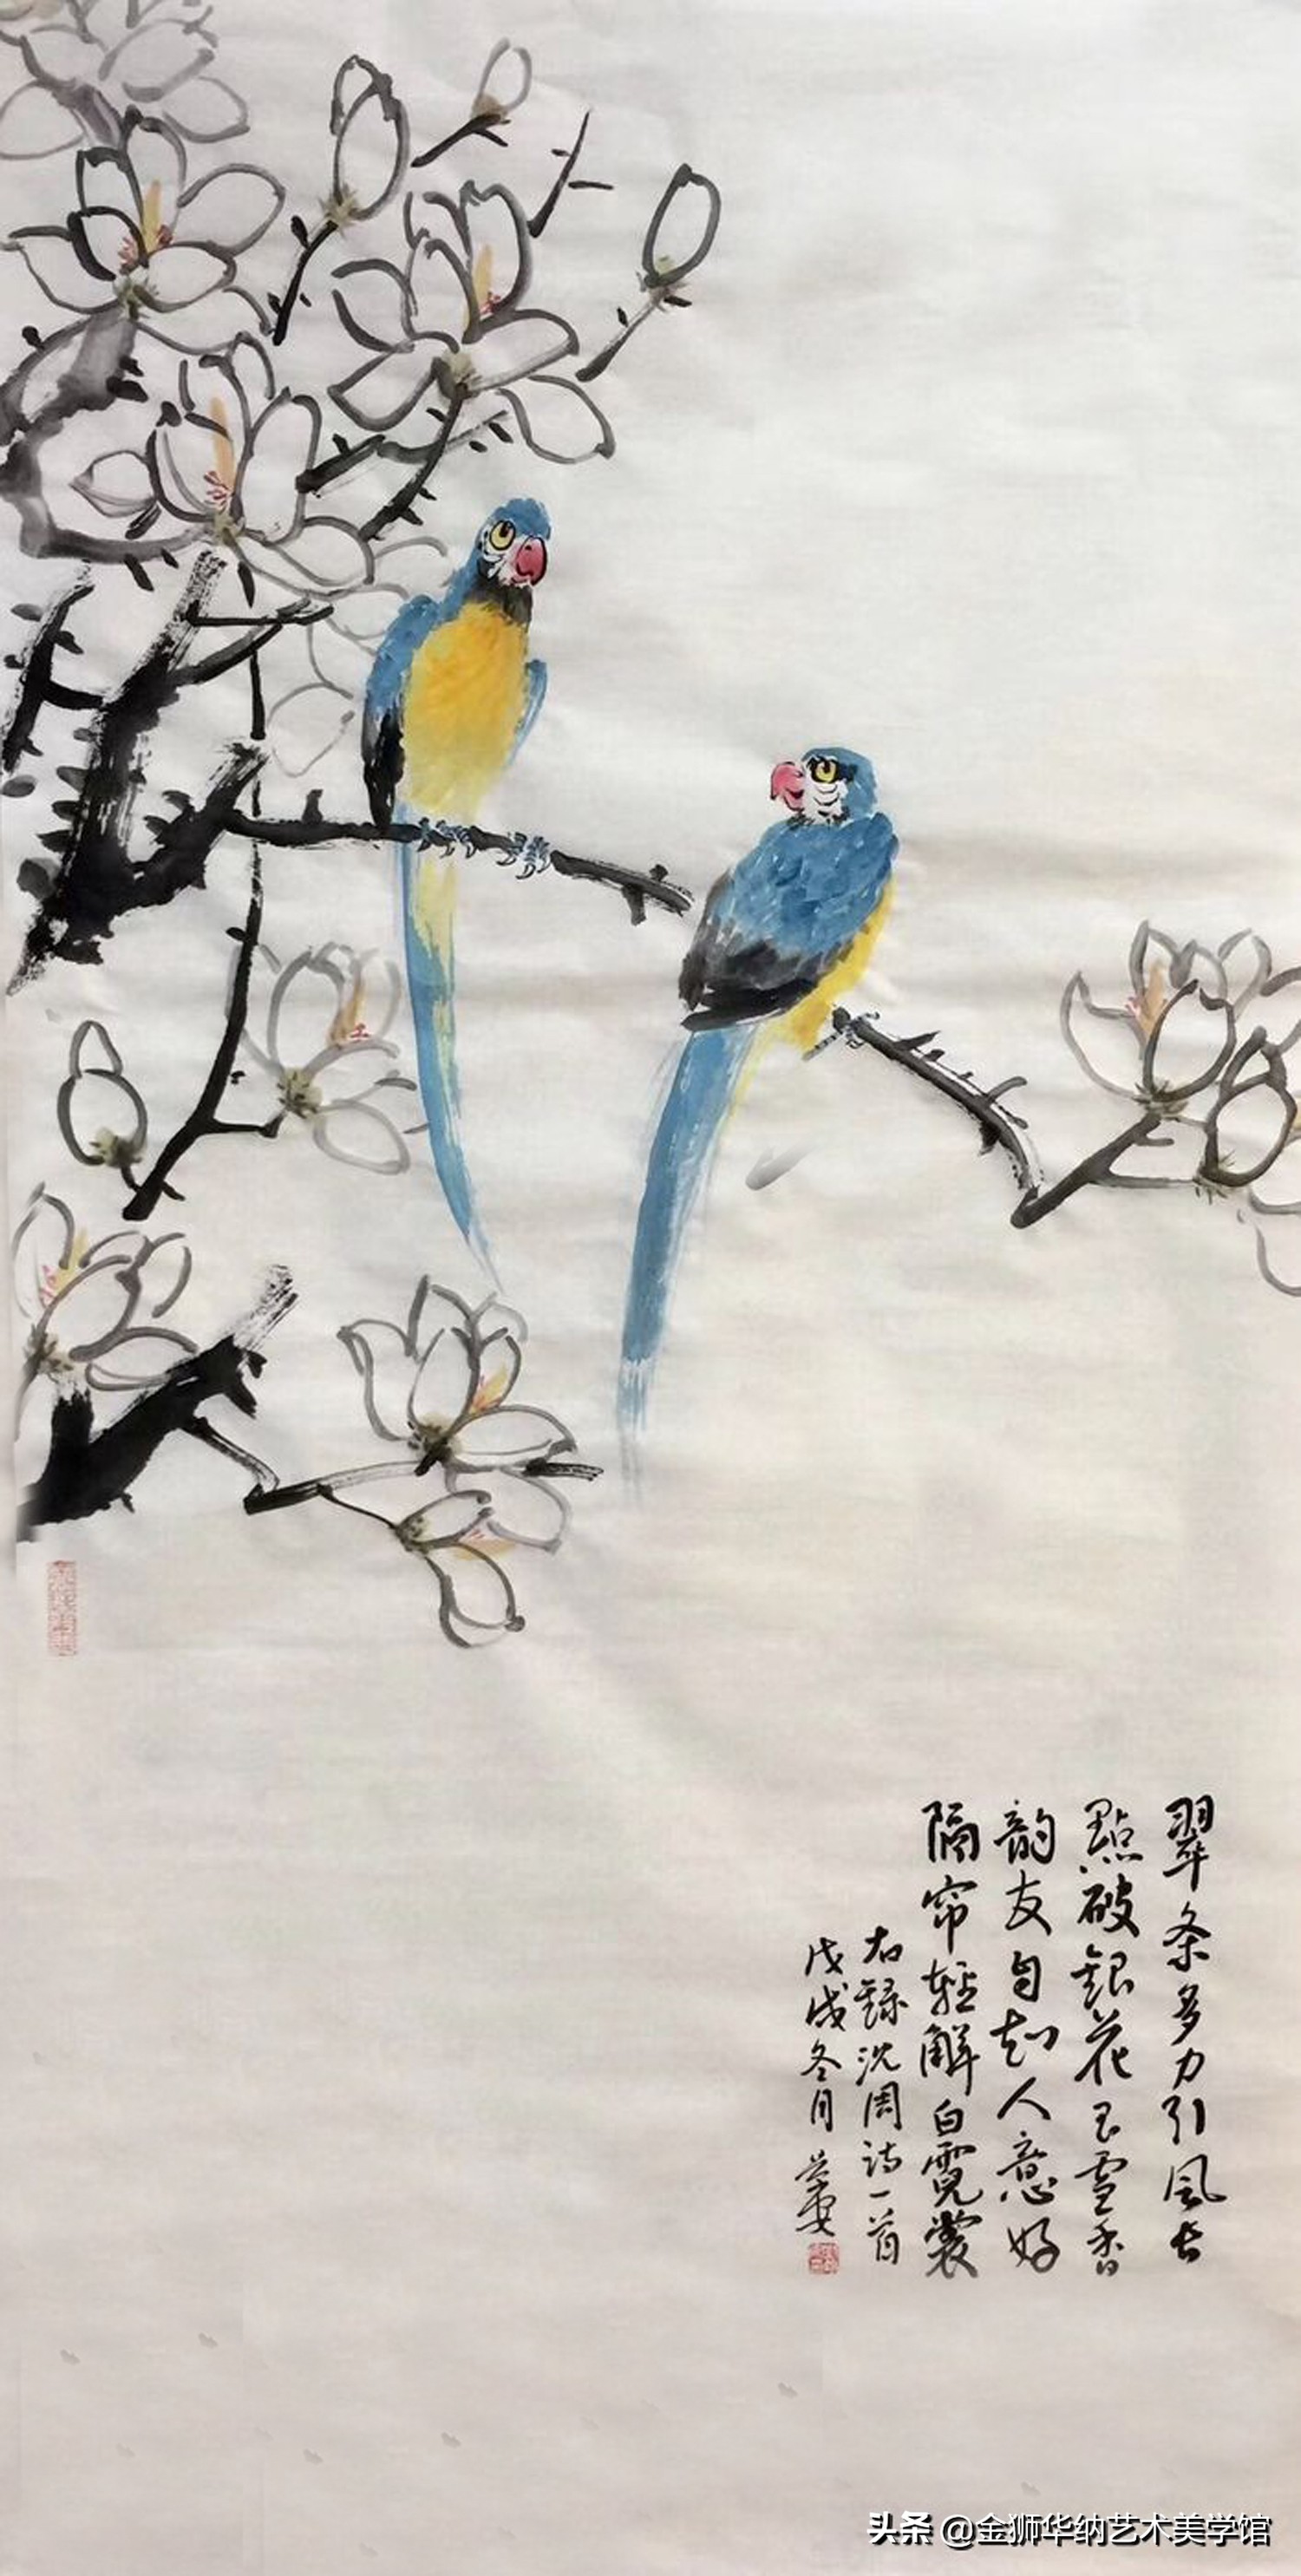 翠条多力引风长
點破銀花玉雪香
韵友自知人意好
隔帘輕解白霓裳
右録沈周诗一首
戊戌冬月
头条 @金狮华纳艺术美学馆